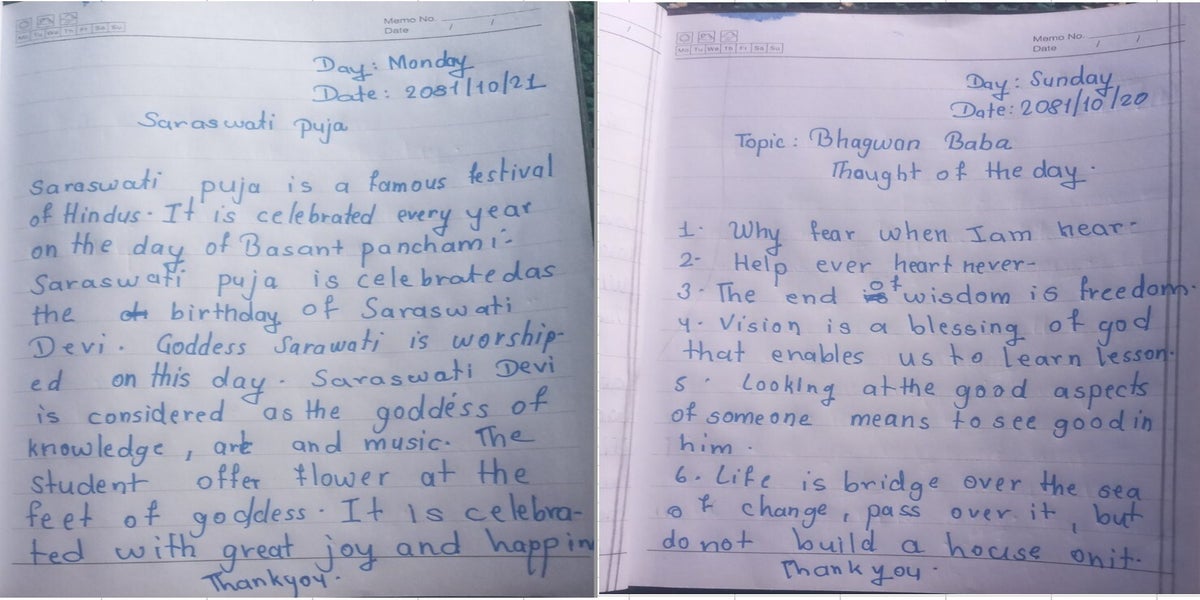 Mo Tu We Th Fr Sa Su
Memo No.
Date / /
Day: Monday
Date: 2081/10/21
Saraswati puja
Saraswati puja is a famous festival
of Hindus. It is celebrated every year
on the day of Basant panchami.
Saraswati puja is celebratedas
the birthday of Saraswati
Devi. Goddess Sarawati is worship-
ed on this day. Saraswati Devi
is considered as the goddess of
knowledge, art and music. The
student offer flower at the
feet of goddess. It is celebra-
ted with great joy and happin
Thankyou.
Mo Tu We Th Fr Sa Su
Memo No.
Date / /
Day: Sunday
Date: 2081/10/20
Topic: Bhagwan Baba
Thought of the day.
1. Why fear when Iam hear-
2- Help ever heart never-
3. The end of wisdom is freedom.
4. Vision is a blessing of god
that enables us to learn lesson.
5. Looking at the good aspects
of someone means to see good in
him.
6. Life is bridge over the sea
of change, pass over it, but
do not build a house onit.
Thank you.